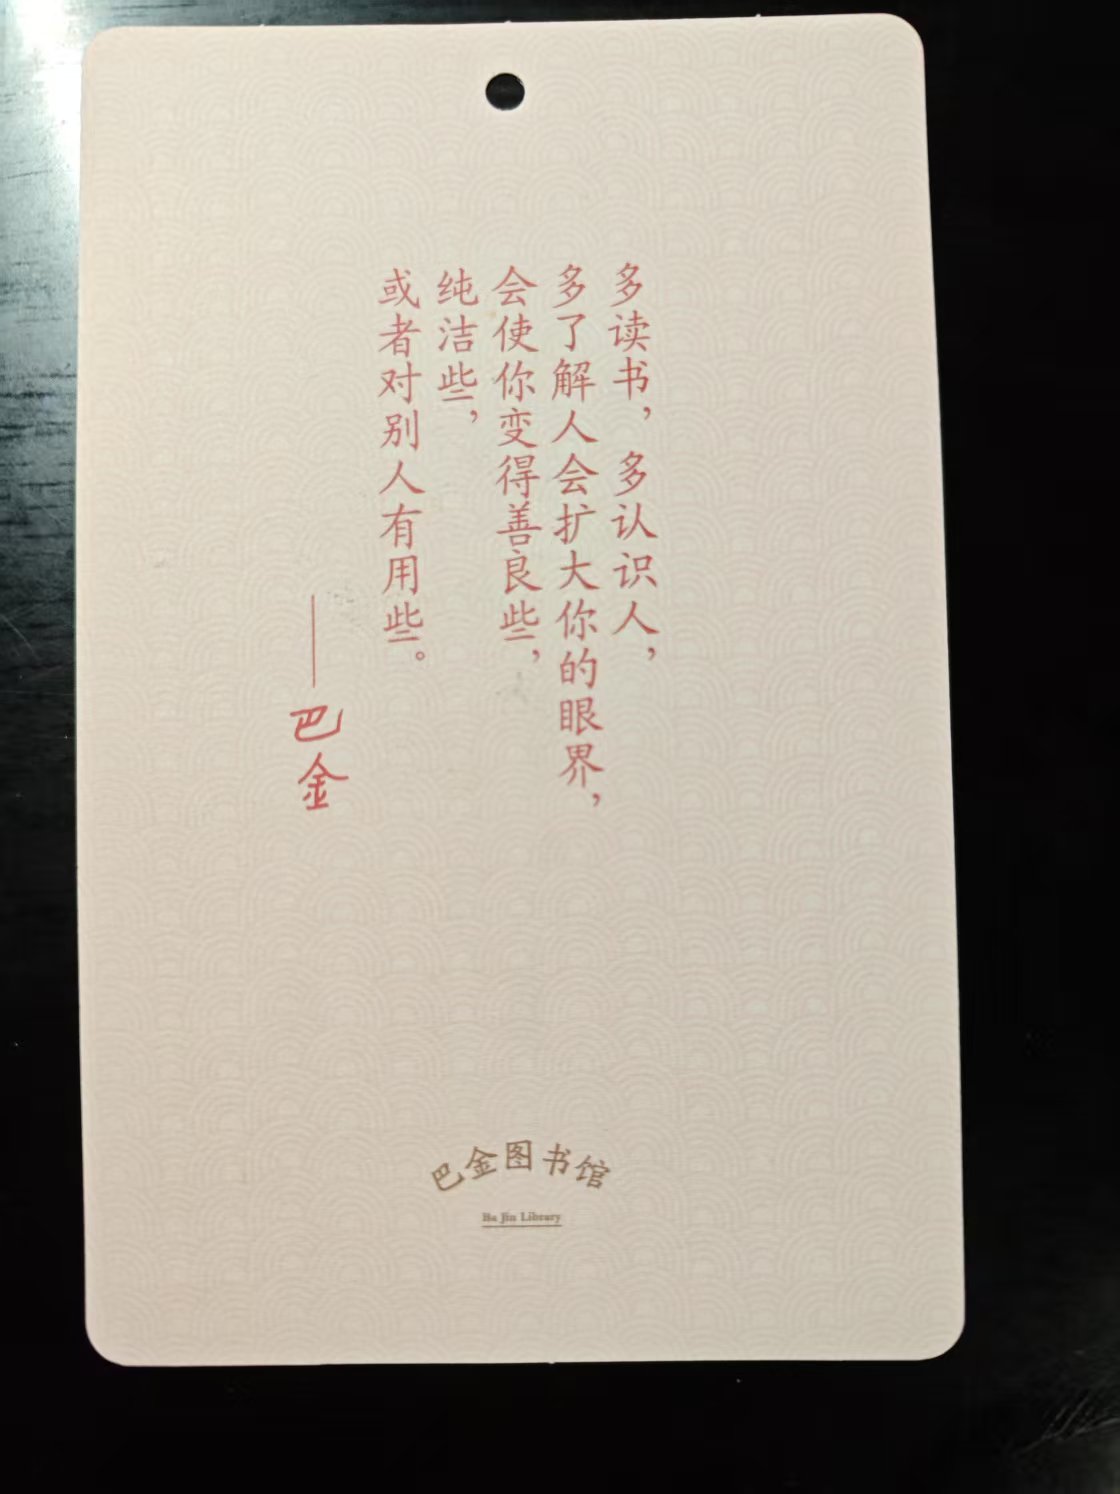 多读书，多认识人，
多了解人会扩大你的眼界，
会使你变得善良些，
纯洁些，
或者对别人有用些。
——巴金
巴金图书馆
Ba Jin Library